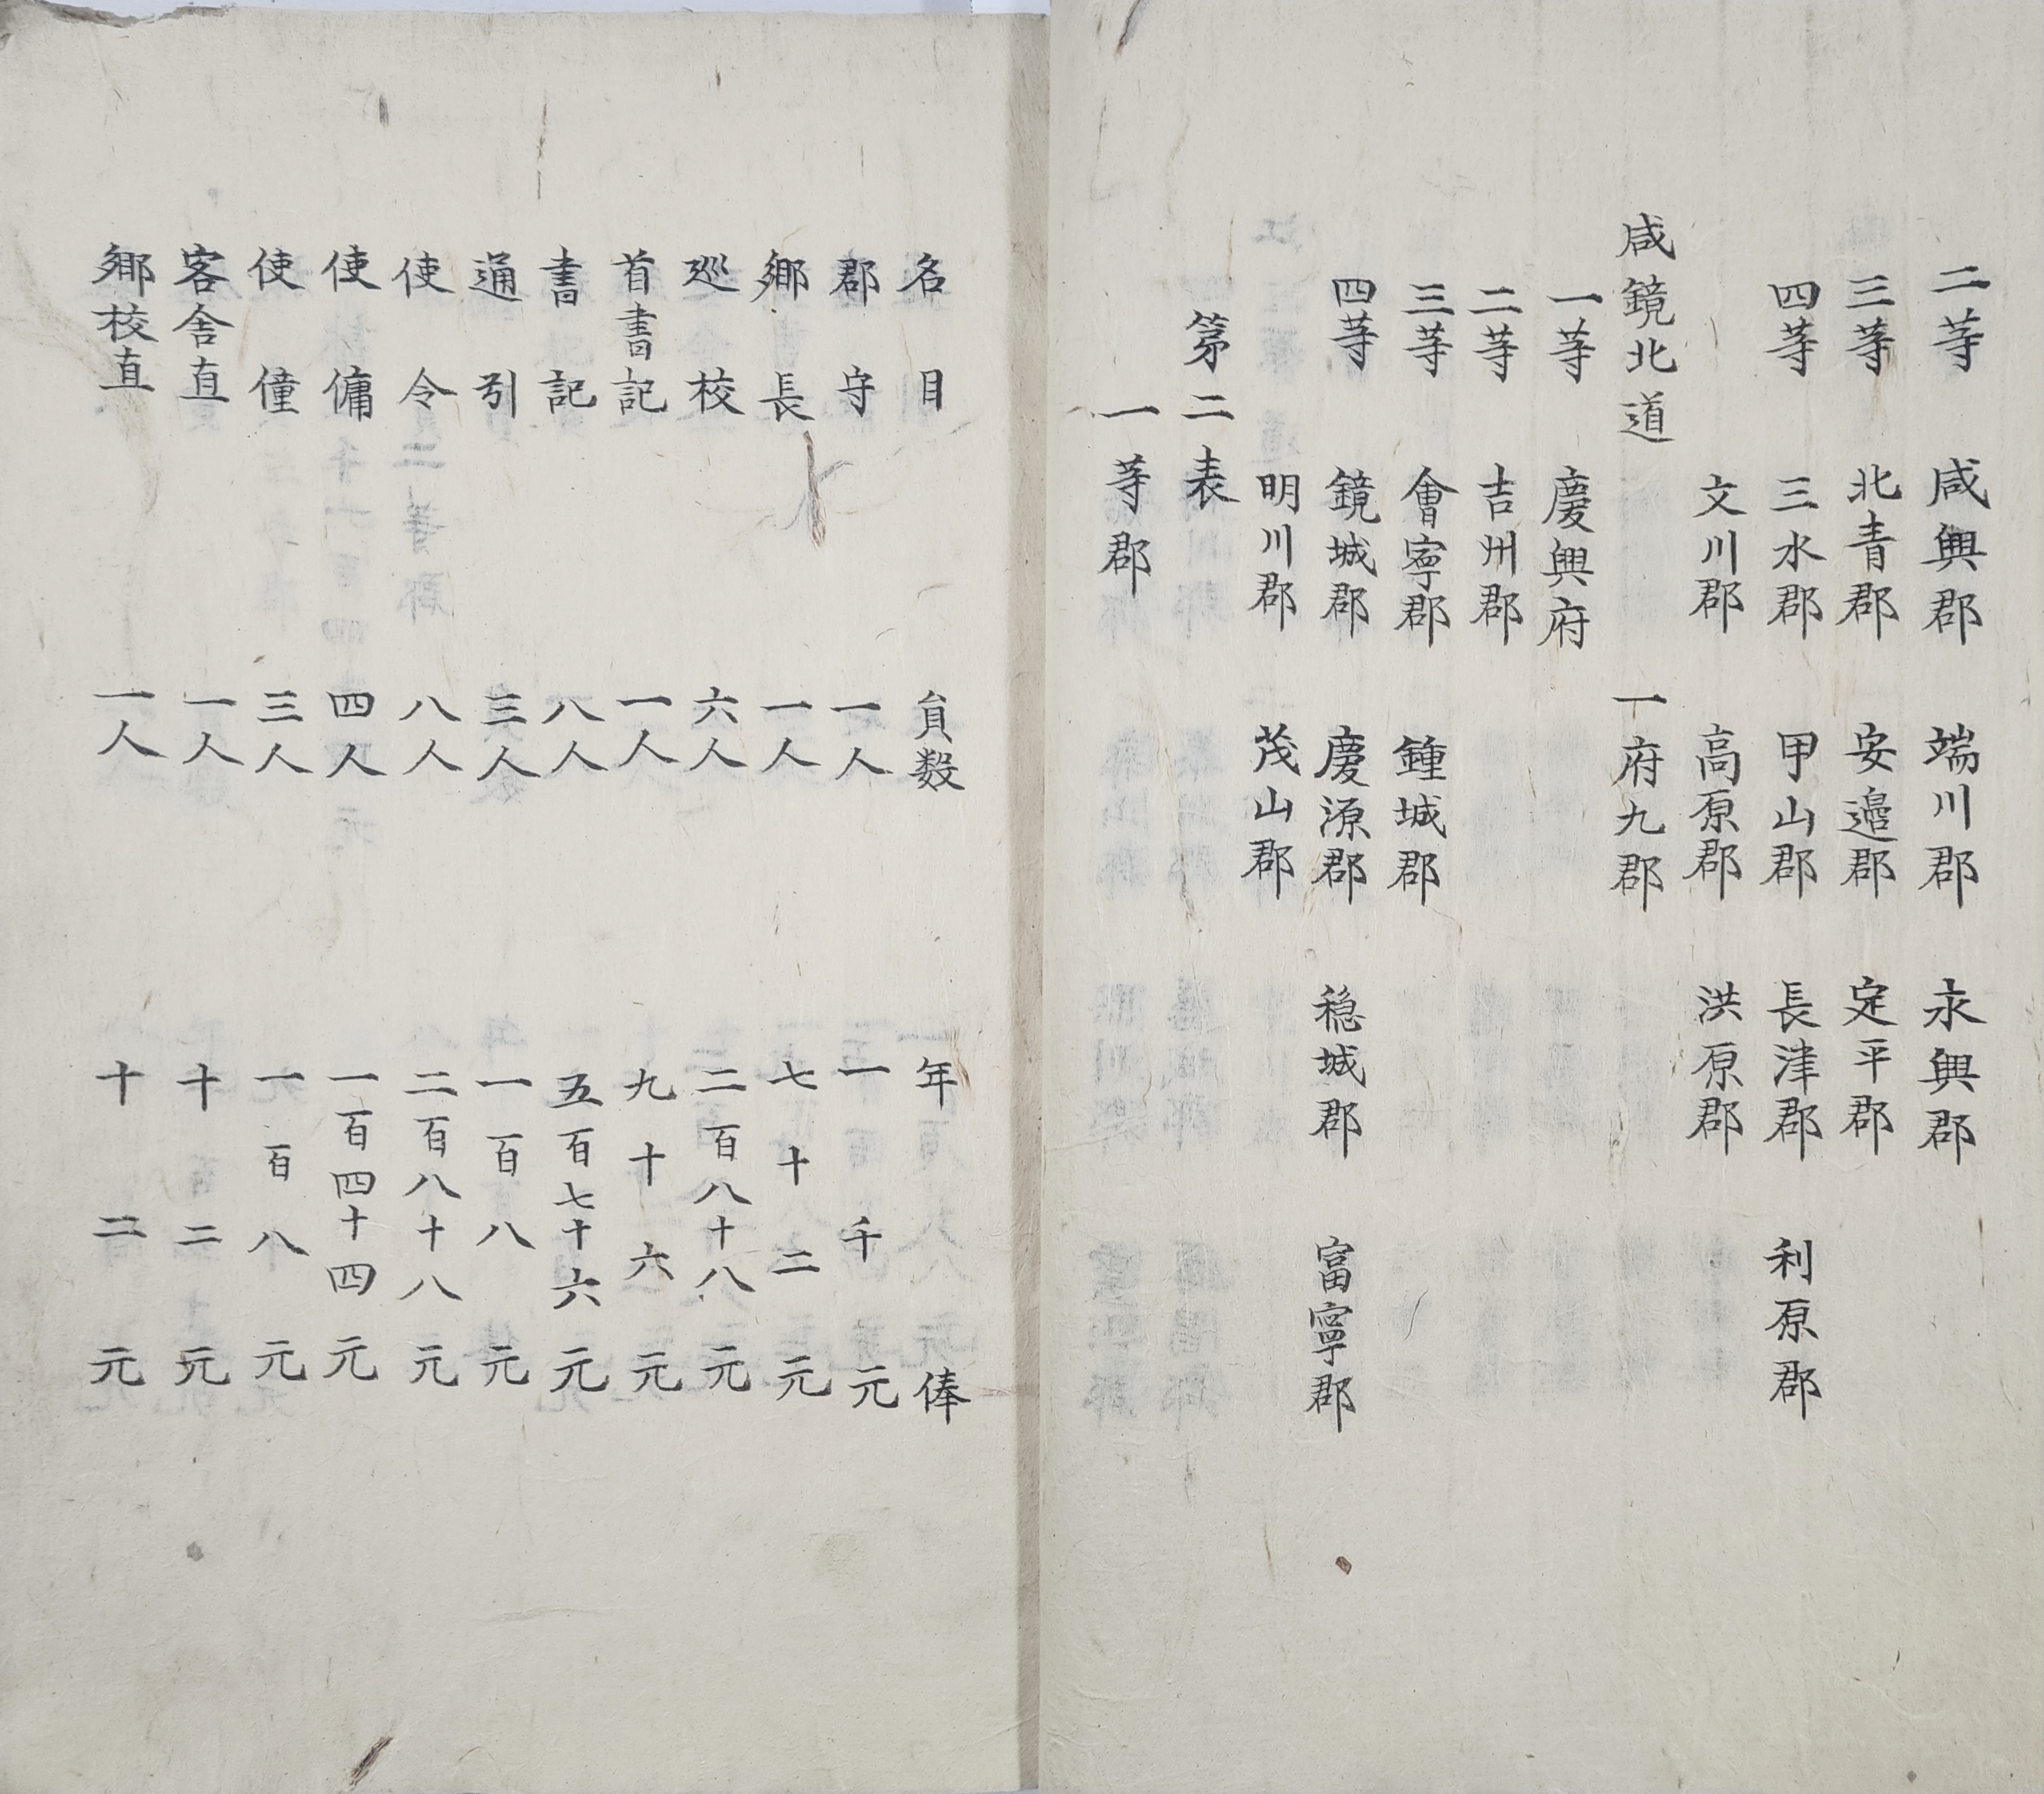 二等 咸興郡 端川郡 永興郡
三等 北青郡 安邊郡 定平郡
四等 三水郡 甲山郡 長津郡 利原郡
文川郡 高原郡 洪原郡
咸鏡北道 一府九郡
一等 慶興府
二等 吉州郡
三等 會寧郡 鍾城郡
四等 鏡城郡 慶源郡 穏城郡 富寧郡
明川郡 茂山郡
第二表
一等郡
名目 員數 年俸
郡守 一人 一千元
鄉長 一人 七十二元
巡校 六人 二百八十八元
首書記 一人 九十六元
書記 八人 五百七十六元
通引 三人 一百八元
使令 八人 二百八十八元
使傭 四人 一百四十四元
使僮 三人 一百八元
客舍直 一人 十二元
鄉校直 一人 十二元